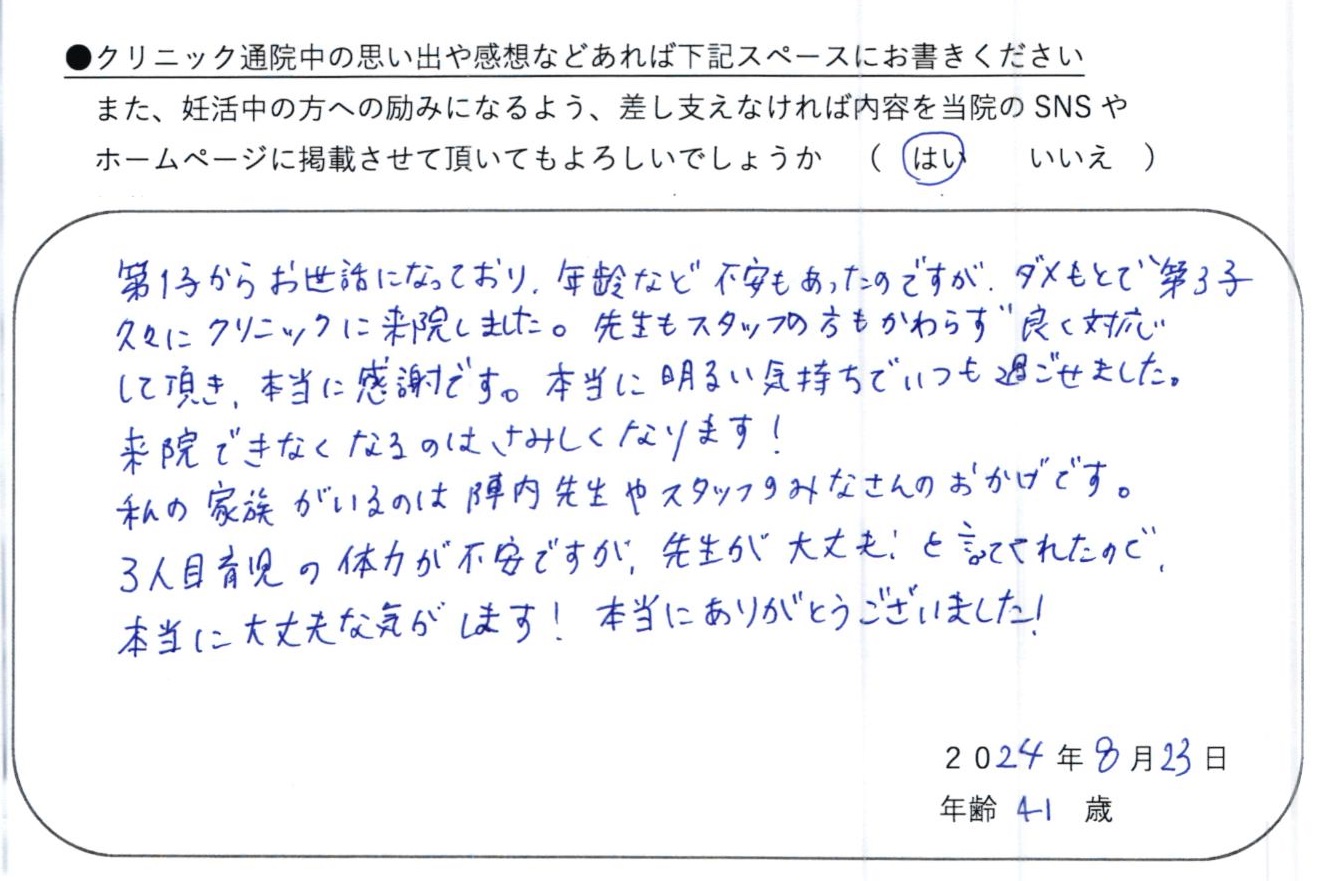 ●クリニック通院中の思い出や感想などあれば下記スペースにお書きください
また、妊活中の方への励みになるよう、差し支えなければ内容を当院の SNS や
ホームページに掲載させて頂いてもよろしいでしょうか （ はい いいえ ）
第1子からお世話になっており、年齢など不安もあったのですが、ダメもとで第3子
久々にクリニックに来院しました。先生もスタッフの方もかわらず良く対応
して頂き、本当に感謝です。本当に明るい気持ちでいつも過ごせました。
来院できなくなるのはさみしくなります！
私の家族がいるのは陣内先生やスタッフのみなさんのおかげです。
3人目育児の体力が不安ですが、先生が大丈夫！と言ってくれたので、
本当に大丈夫な気がします！本当にありがとうございました！
2024年8月23日
年齢 41 歳